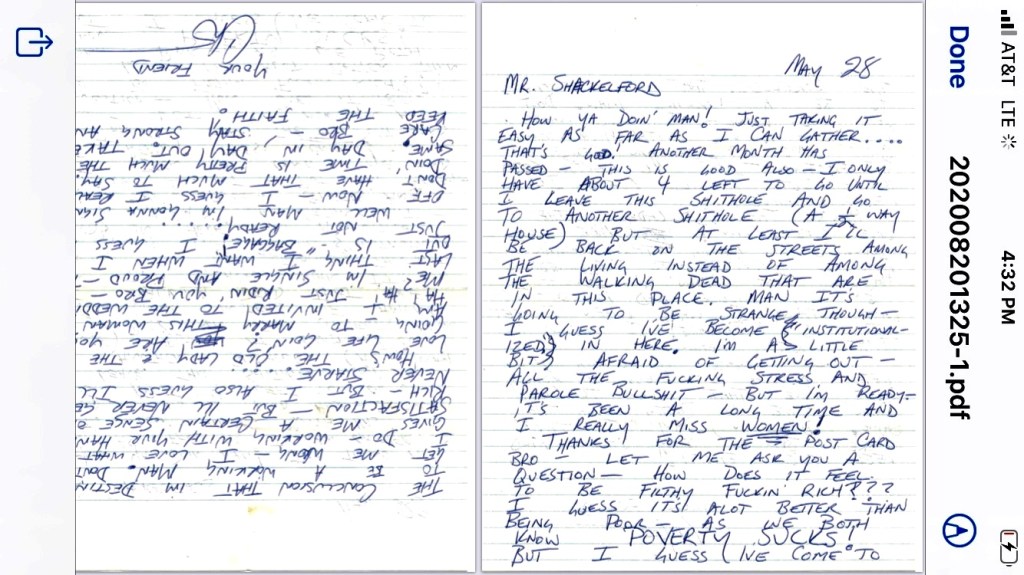 AT&T LTE
4:32 PM
Done
20200820201325-1.pdf
MAY 28
MR. SHACKELFORD
HOW YA DOIN' MAN! JUST TAKING IT
EASY AS FAR AS I CAN GATHER....
THAT'S GOOD. ANOTHER MONTH HAS
PASSED - THIS IS GOOD ALSO - I ONLY
HAVE ABOUT 4 LEFT TO GO UNTIL
I LEAVE THIS SHITHOLE AND GO
TO ANOTHER SHITHOLE (A ½ WAY
HOUSE) BUT AT LEAST I'LL
BE BACK ON THE STREETS AMONG
THE LIVING INSTEAD OF AMONG
THE WALKING DEAD THAT ARE
IN THIS PLACE. MAN IT'S
GOING TO BE STRANGE THOUGH -
I GUESS I'VE BECOME "INSTITUTIONAL-
IZED" IN HERE. I'M A LITTLE
BIT AFRAID OF GETTING OUT -
ALL THE FUCKING STRESS AND
PAROLE BULLSHIT - BUT I'M READY -
IT'S BEEN A LONG TIME AND
I REALLY MISS WOMEN!
THANKS FOR THE POST CARD
BRO - LET ME ASK YOU A
QUESTION - HOW DOES IT FEEL
TO BE FILTHY FUCKIN' RICH???
I GUESS ITS ALOT BETTER THAN
BEING POOR - AS WE BOTH
KNOW POVERTY SUCKS!
BUT I GUESS I'VE COME TO
THE CONCLUSION THAT I'M DESTIN
TO BE A WORKING MAN. DON'T
GET ME WRONG - I LOVE WHAT
I DO - WORKING WITH YOUR HAN
GIVES ME A CERTAIN SENSE O
SATISFACTION - BUT I'LL NEVER GE
RICH - BUT I ALSO GUESS I'LL
NEVER STARVE ......
HOW'S THE OLD LADY & THE
LOVE LIFE GOIN? ARE YOU
GOING TO MARRY THIS WOMAN
AM I INVITED TO THE WEDDI
HA HA JUST RIDIN' YOU BRO -
ME? I'M SINGLE AND PROUD -
LAST THING I WANT WHEN I
OUT IS "BAGGAGE" I GUESS
JUST NOT READY .....
WELL MAN I'M GONNA SIGN
OFF NOW - I GUESS I REAL
DON'T HAVE THAT MUCH TO SAY.
DOIN' TIME IS PRETTY MUCH THE
SAME DAY IN, DAY OUT. TAKE
CARE BRO - STAY STRONG AN
KEEP THE FAITH!
YOUR FRIEND